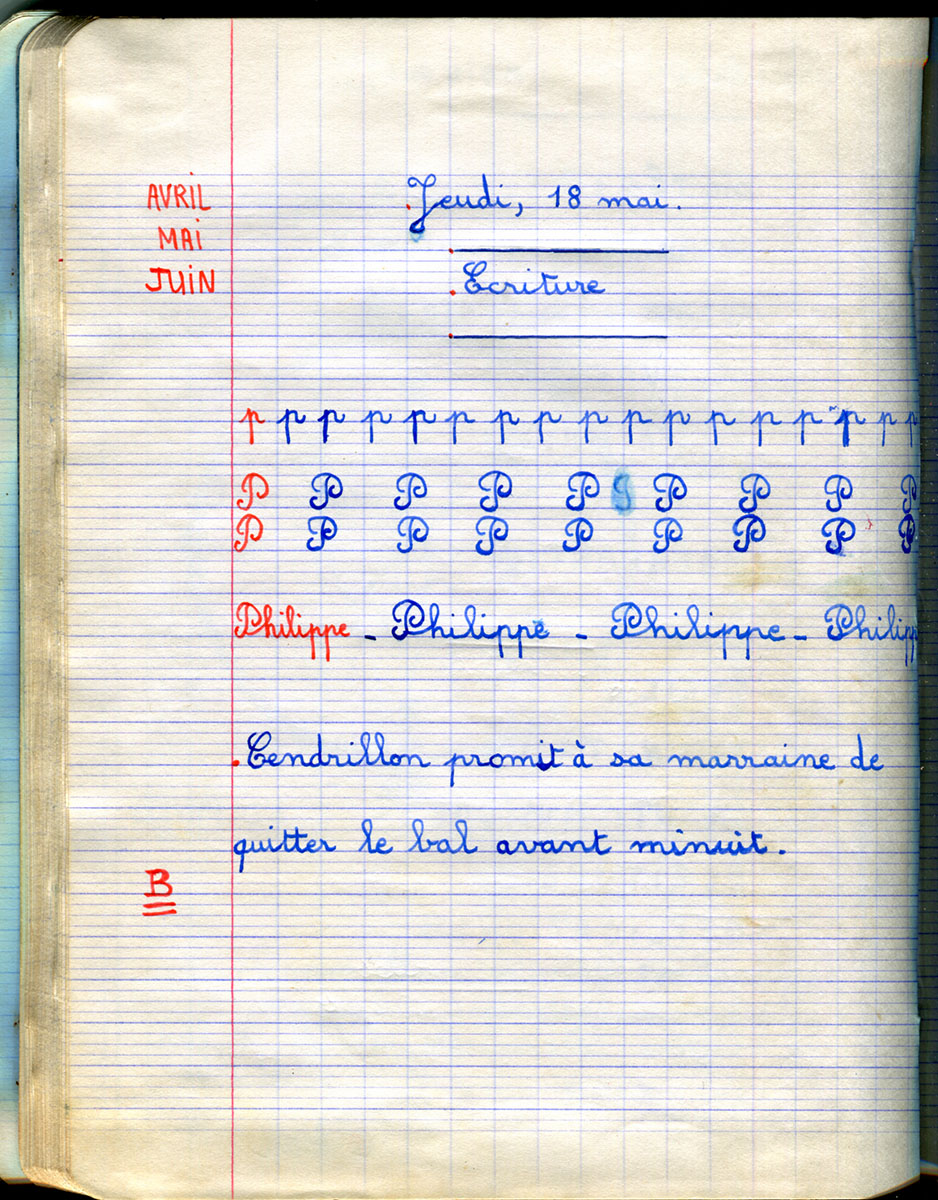 AVRIL
MAI
JUIN
Jeudi, 18 mai.
Ecriture
p p p p p p p p p p p p p p p p p
P P P P P P P P P
P P P P P P P P P
Philippe - Philippe - Philippe - Philipp
Cendrillon promit à sa marraine de
quitter le bal avant minuit.
B